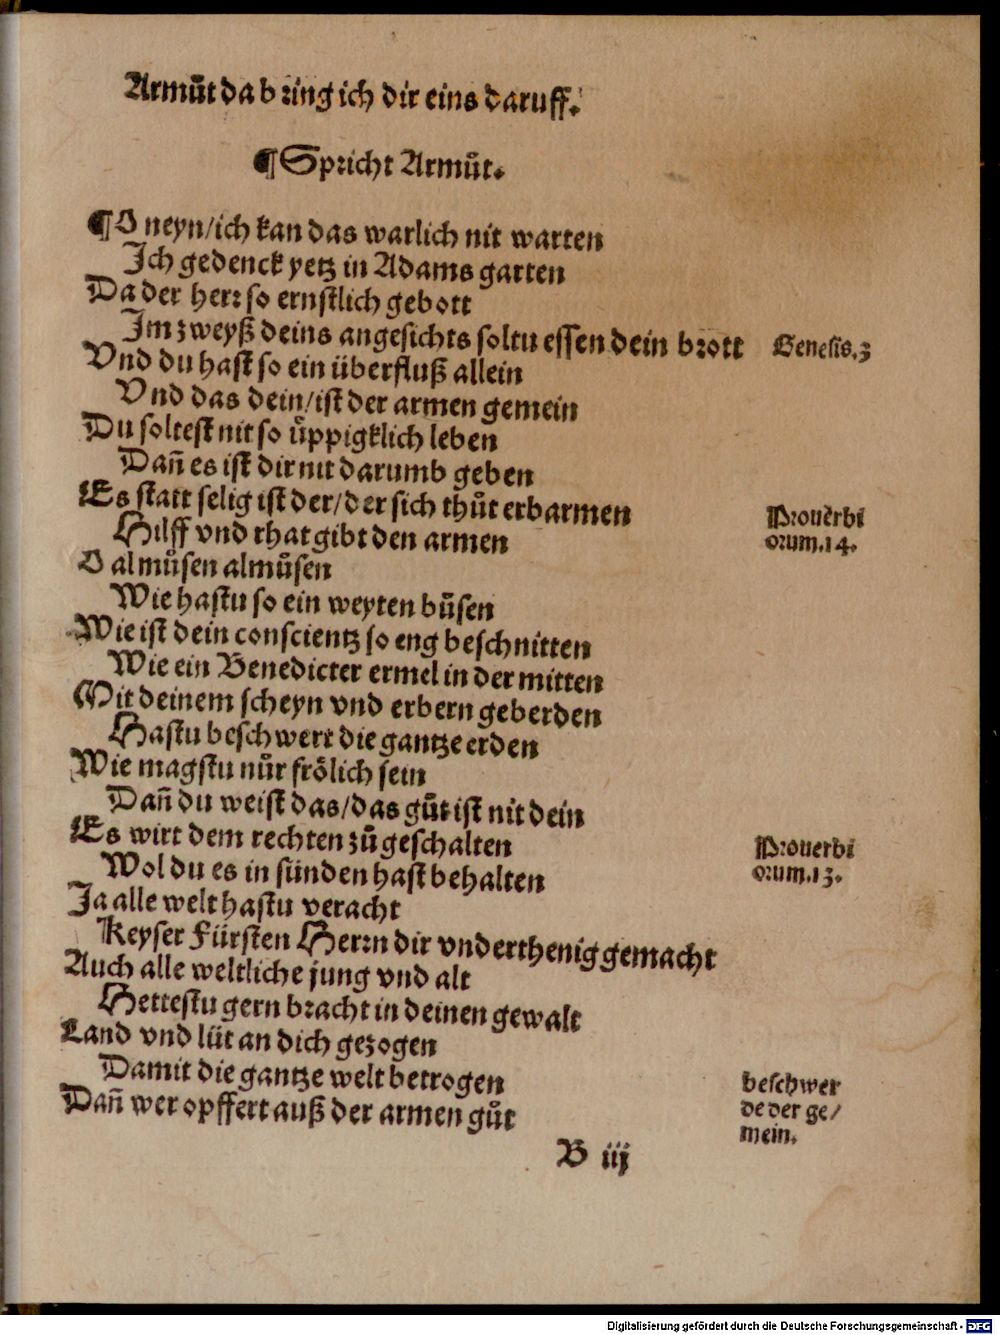 Armůt da bring ich dir eins daruff.
¶Spricht Armůt.
¶O neyn/ich kan das warlich nit warten
Ich gedenck yetz in Adams garten
Da der herr so ernstlich gebott
Im zweyß deins angesichts soltu essen dein brott
Genesis.3
Vnd du hast so ein überfluß allein
Vnd das dein/ist der armen gemein
Du soltest nit so üppigklich leben
Dañ es ist dir nit darumb geben
Es statt selig ist der/der sich thůt erbarmen
Prouerbi
Hilff vnd rhat gibt den armen
orum.14.
O almůsen almůsen
Wie hastu so ein weyten bůsen
Wie ist dein conscientz so eng beschnitten
Wie ein Benedicter ermel in der mitten
Mit deinem scheyn vnd erbern geberden
Hastu beschwert die gantze erden
Wie magstu nůr frölich sein
Dañ du weist das/das gůt ist nit dein
Es wirt dem rechten zů geschalten
Prouerbi
Wol du es in sünden hast behalten
orum.13.
Ja alle welt hastu veracht
Keyser Fürsten Herrn dir vnderthenig gemacht
Auch alle weltliche jung vnd alt
Hettestu gern bracht in deinen gewalt
Land vnd lüt an dich gezogen
Damit die gantze welt betrogen
beschwer
Dañ wer opffert auß der armen gůt
de der ge/
mein.
B iij
Digitalisierung gefördert durch die Deutsche Forschungsgemeinschaft - DFG